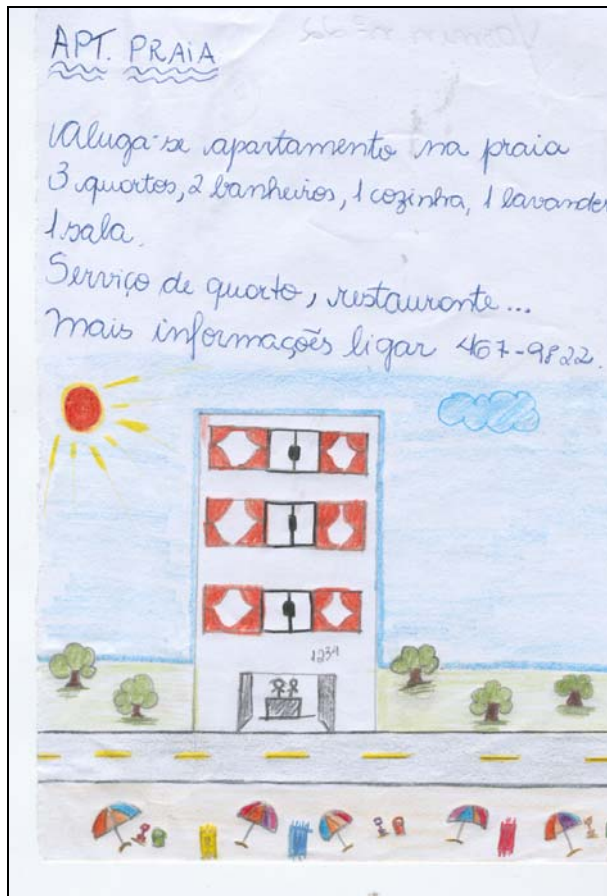 APT. PRAIA
Aluga-se apartamento na praia
3 quartos, 2 banheiros, 1 cozinha, 1 lavander
1 sala.
Serviço de quarto, restaurante...
Mais informações ligar 467-9822.
1234